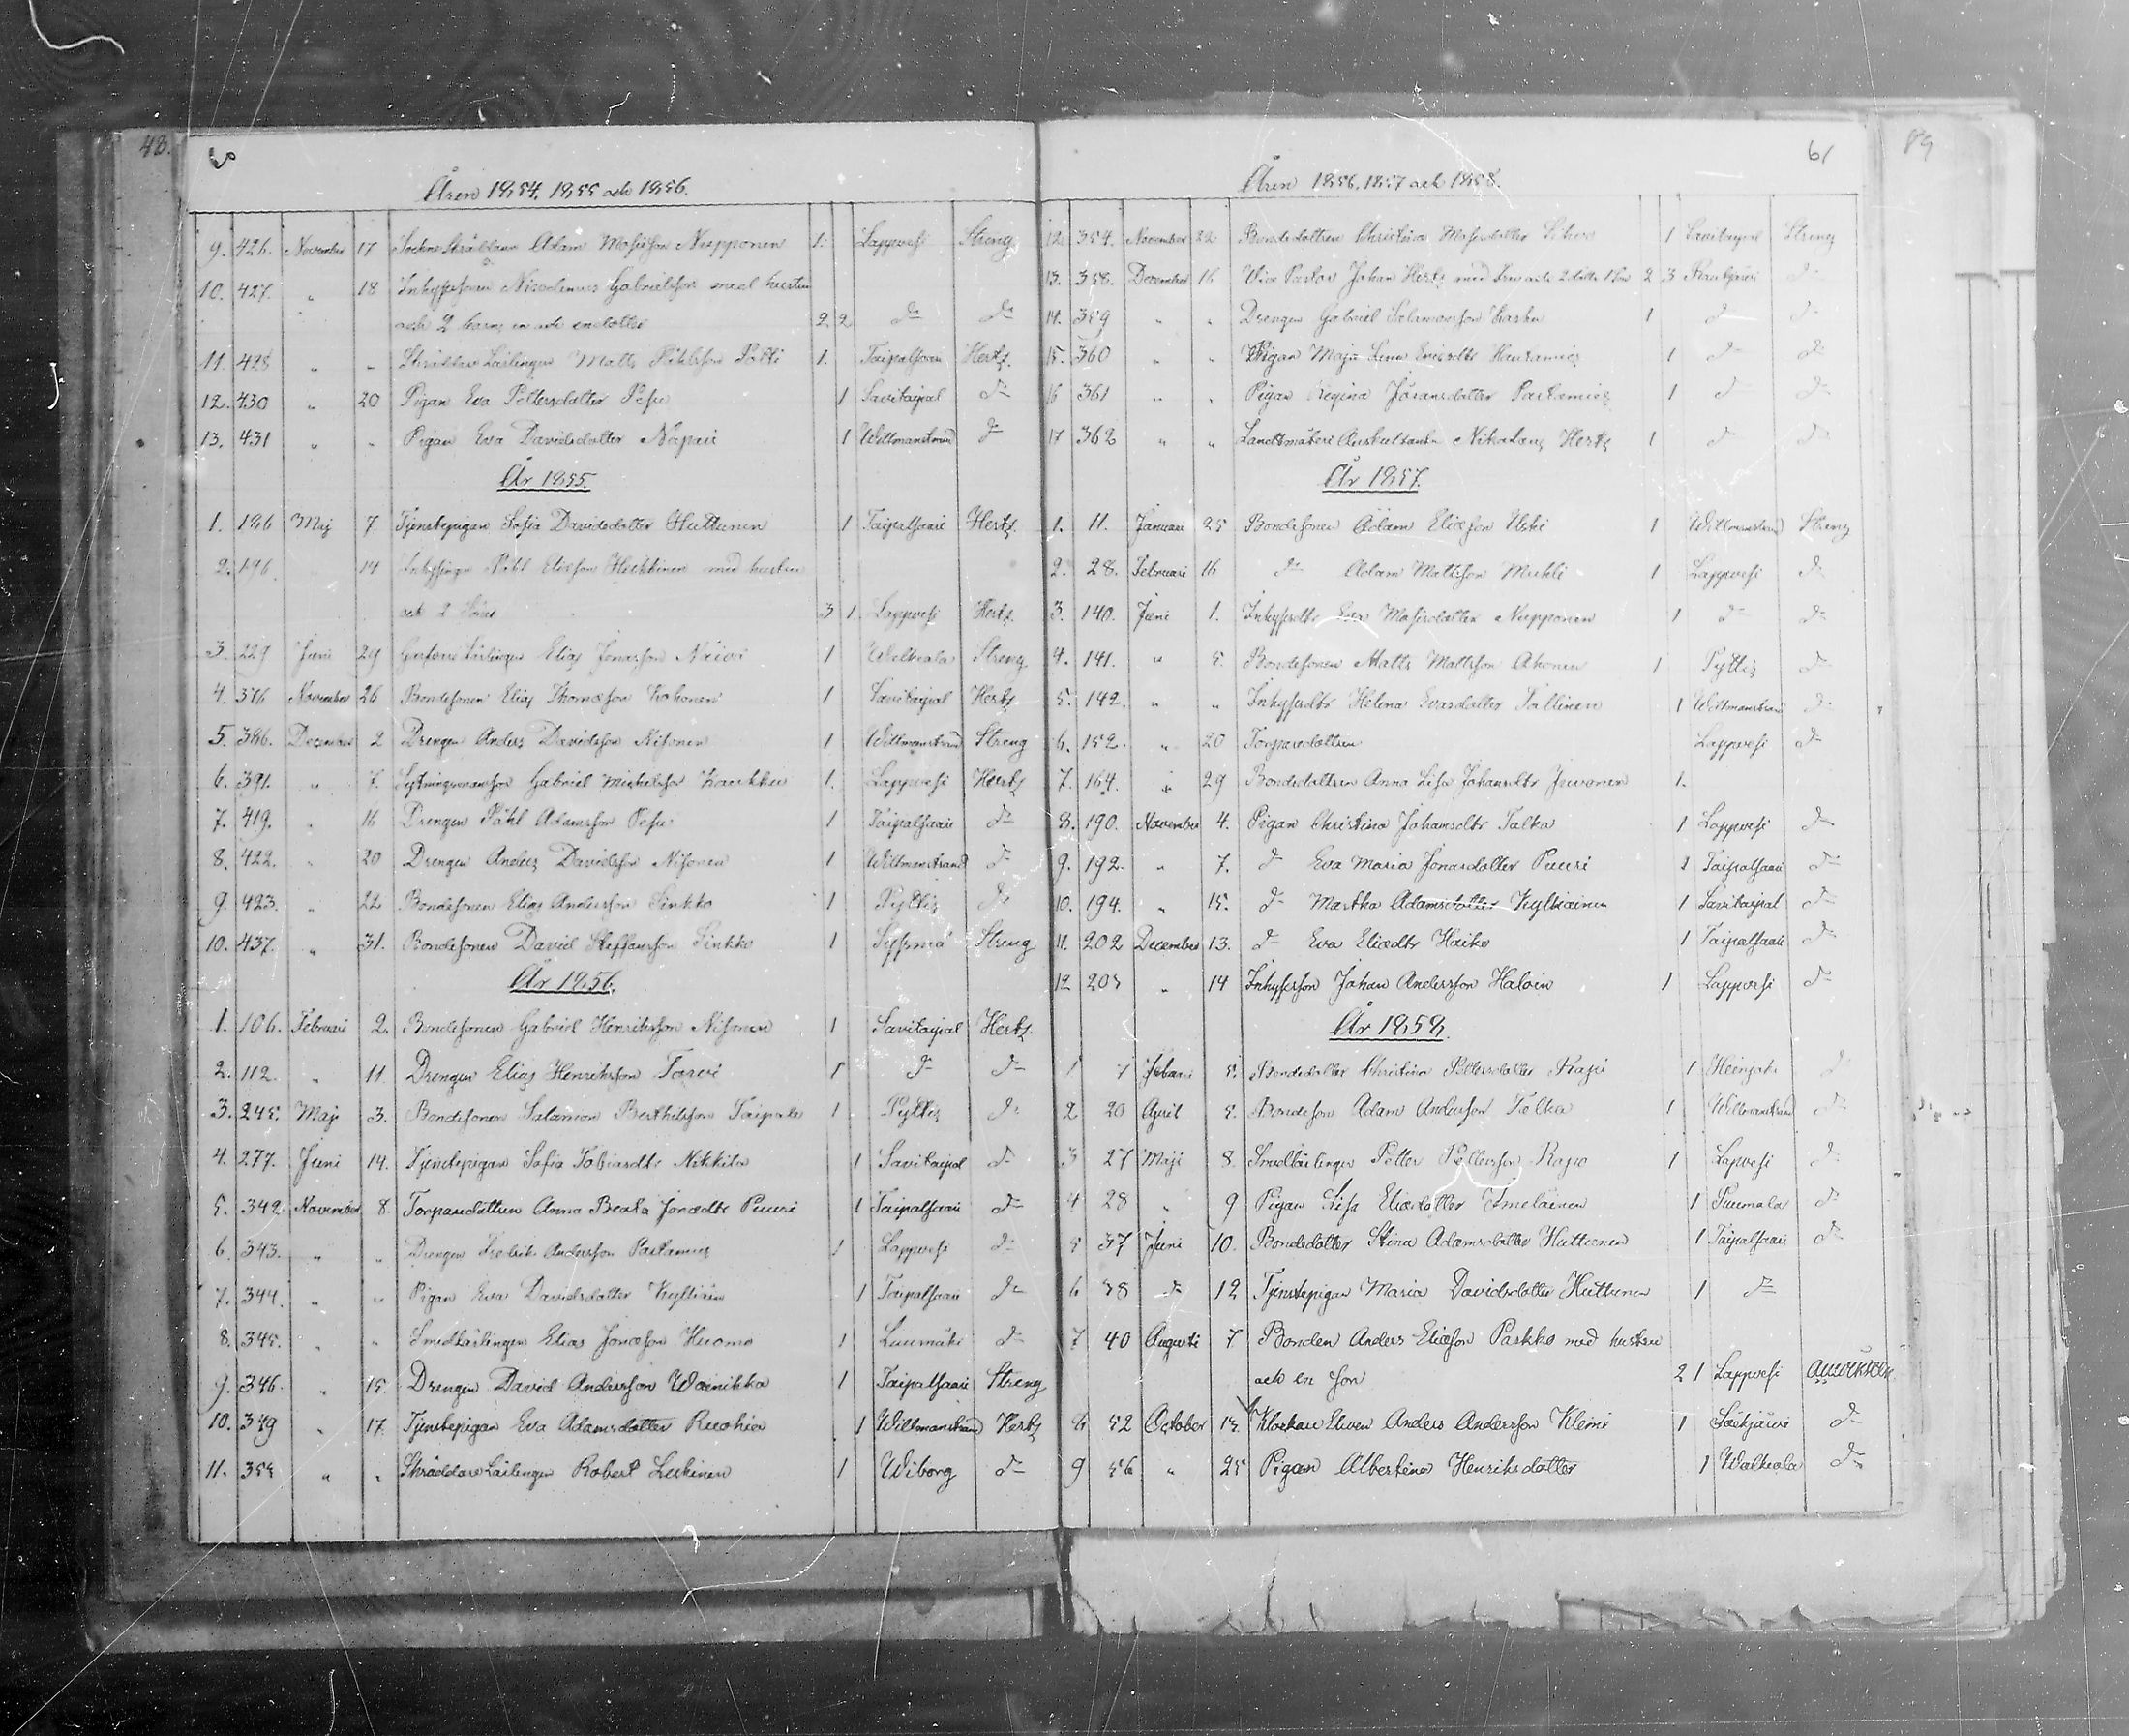 48.
Åren 1854, 1855 och 1856.
9. 426. November 17 Sockne Skräddaren Adam Mattsson Nupponen 1. Lappvesi Streng
10. 427. " 18 Inhysesson Nicodemus Gabrielsson med hustru
och 2 barn, en och en dotter 2 2 d:o d:o
11. 428 " " Skräddare Lärlingen Matts Påhlsson Pätti 1. Taipalsaari Hertz.
12. 430 " 20 Pigan Eva Pettersdotter Pesu 1 Savitaipal d:o
13. 431 " " Pigan Eva Davidsdotter Napari 1 Willmanstrand d:o
År 1855.
1. 186 Maj 7. Tjenstepigan Sofia Davidsdotter Huttunen 1 Taipalsaari Hertz.
2. 196. 14 Inhysingen Påhl Eliesson Heikkinen med hustru
och 2 Söner 3 1. Lappvesi Hertz.
3. 229 Juni 29 Lärlingen Elias Jonasson 1 Walkeala Streng
4. 376 November 26 Bondesonen Elias Thomasson Kokonen 1 Savitaipal Hertz
5. 386. December 2 Drengen Anders Davidsson Nisonen 1 Willmanstrand Streng
6. 391. " 7. Gabriel Michelsson Kaukku 1. Lappvesi Hertz
7. 419. " 16 Drengen Påhl Adamsson Pesu 1 Taipalsaari d:o
8. 422. " 20 Drengen Anders Davidsson Nisonen 1 Willmanstrand d:o
9. 423. " 22 Bondesonen Elias Andersson Sinkko 1 Pyttis d:o
10. 437. " 31. Bondesonen David Steffansson Sinkko 1 Sysmä Streng
År 1856.
1. 106. Februari 2. Bondesonen Gabriel Henriksson Nisonen 1 Savitaipal Hertz.
2. 112. " 11 Drengen Elias Henriksson Tarvi 1 d:o d:o
3. 245. Maji 3. Bondesonen Salamon Berthilsson Taipale 1 Pyttis d:o
4. 277. Juni 14. Tjenstepigan Sofia Tobiasdtr Nikkila 1 Savitaipal d:o
5. 342. November 8. Torparedottren Anna Beata Jonædtr Puuri 1 Taipalsaari d:o
6. 343. " " Drengen Fredrik Andersson Partanus 1 Lappvesi d:o
7. 344. " " Pigan Eva Davidsdotter Kyltiäin 1 Taipalsaari d:o
8. 345. " " Smedlärlingen Elias Jonasson Huomo 1 Luumäki d:o
9. 346. " 15. Drengen David Andersson Wainikka 1 Taipalsaari Streng
10. 349 " 17. Tjenstepigan Eva Adamsdotter Ruohia 1 Willmanstrand Hertz
11. 355 " " Skräddare Lärlingen Robert Leskinen 1 Wiborg d:o
61
Åren 1856, 1857 och 1858.
12. 354. November 22 Bondedottren Christina Mattsdotter Sihvo 1 Savitaipal Streng
13. 358. December 16 Vice Pastor Johan Hertz med Fru och 2 döttr. 1 Son 2 3 d:o
14. 359 " " Drengen Gabriel Salamonsson 1 d:o d:o
15. 360 " " Pigan Maja Lena Ericsdtr Hautamies 1 d:o d:o
16 361 " " Pigan Regina Jöransdotter Partamies 1 d:o d:o
17 362 " " Landtmäteri Auskultanten Nikolaus Hertz 1 d:o d:o
År 1857.
1. 11. Januari 25 Bondesonen Adam Eliasson Uski 1 Willmanstrand Streng
2. 28. Februari 16 d:o Adam Mattsson Muhli 1 Lappvesi d:o
3. 140. Juni 1. Inhysesdtr Eva Mattsdotter Nupponen 1 d:o d:o
4. 141. " 5. Bondesonen Matts Mattsson Ahonen 1 Pyttis d:o
5. 142. " " Inhysesdtr Helena Evasdotter Tallinen 1 Willmanstrand d:o
6. 152. " 20 Torparedottren Lappvesi d:o
7. 164. " 29 Bondedottren Anna Lisa Johansdtr Juvonen 1.
8. 190. November 4. Pigan Christina Johansdtr Talka 1 Lappvesi d:o
9. 192. " 7. d:o Eva Maria Jonasdotter Puuri 1 Taipalsaari d:o
10. 194. " 15. d:o Martha Adamsdotter Kyltiainen 1 Savitaipal d:o
11. 202 December 13. d:o Eva Eliædtr Haiko 1 Taipalsaari d:o
12 205 " 14 Inhysesson Johan Andersson Haloin 1 Lappvesi d:o
År 1858.
1 7 5. Bondedotter Christina Pettersdotter Rapi 1 d:o
2 20 April 5. Bondeson Adam Andersson Talka 1 Willmanstrand d:o
3 27 Maji 8. Smedlärlingen Petter Pettersson Rapo 1 Lapvesi d:o
4 28 " 9 Pigan Lisa Eliædotter Imeläinen 1 Puumala d:o
5 37 Juni 10. Bondedotter Stina Adamsdotter Huttunen 1 Taipalsaari d:o
6 38 d:o 12 Tjenstepigan Maria Davidsdotter Huttunen 1 d:o
7 40 Augusti 7 Bonden Anders Eliasson Paskko med hustru
och en son 2 1 Lappvesi
8 52 October 15. Klockare Eleven Anders Andersson Kleimi 1 Säkjärvi d:o
9 56 " 25 Pigan Albertina Henriksdotter 1 Walkeala d:o